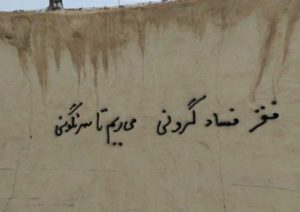 فقر فساد گرونی می‌ریم تا سرنگونی